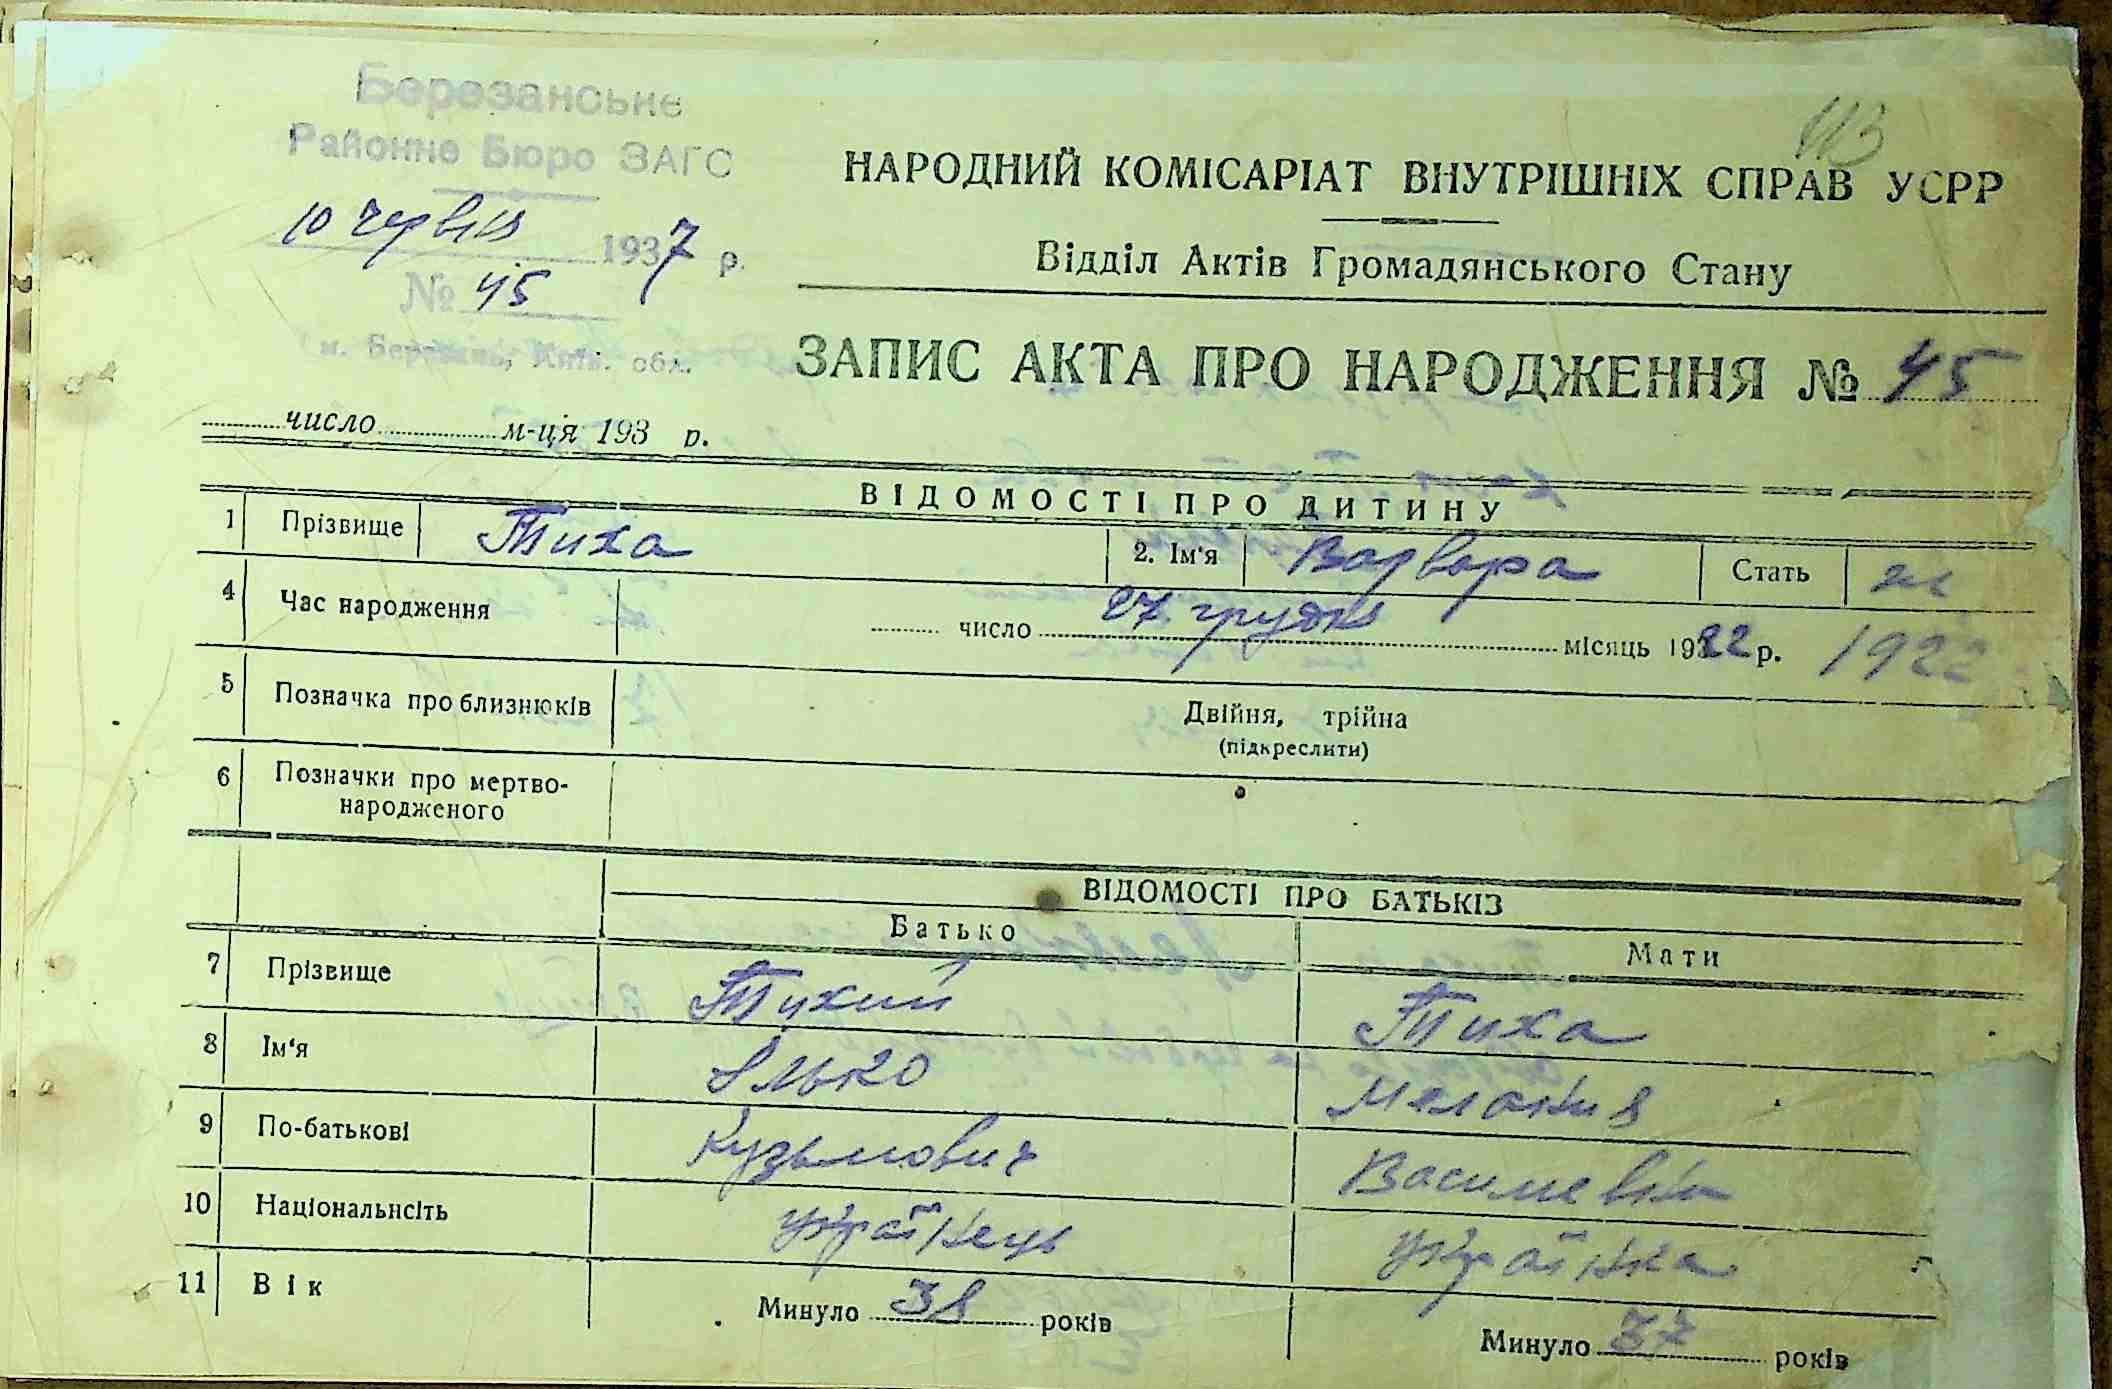 113
Березанське
Районне Бюро ЗАГС
10 червня 1937 р.
№ 45
м. Березань, Київ. обл.
НАРОДНИЙ КОМІСАРІАТ ВНУТРІШНІХ СПРАВ УСРР
Відділ Актів Громадянського Стану
ЗАПИС АКТА ПРО НАРОДЖЕННЯ № 45
число м-ця 193 р.
ВІДОМОСТІ ПРО ДИТИНУ
1 Прізвище Тиха 2. Ім'я Варвара Стать ж
4 Час народження число 27 грудня місяць 1922 р. 1922
5 Позначка про близнюків Двійня, трійна
(підкреслити)
6 Позначки про мертво-
народженого
ВІДОМОСТІ ПРО БАТЬКІВ
Батько Мати
7 Прізвище Тихий Тиха
8 Ім'я Ялько Меланія
9 По-батькові Кузьмович Василевна
10 Національність українець українка
11 Вік Минуло 38 років Минуло 37 років